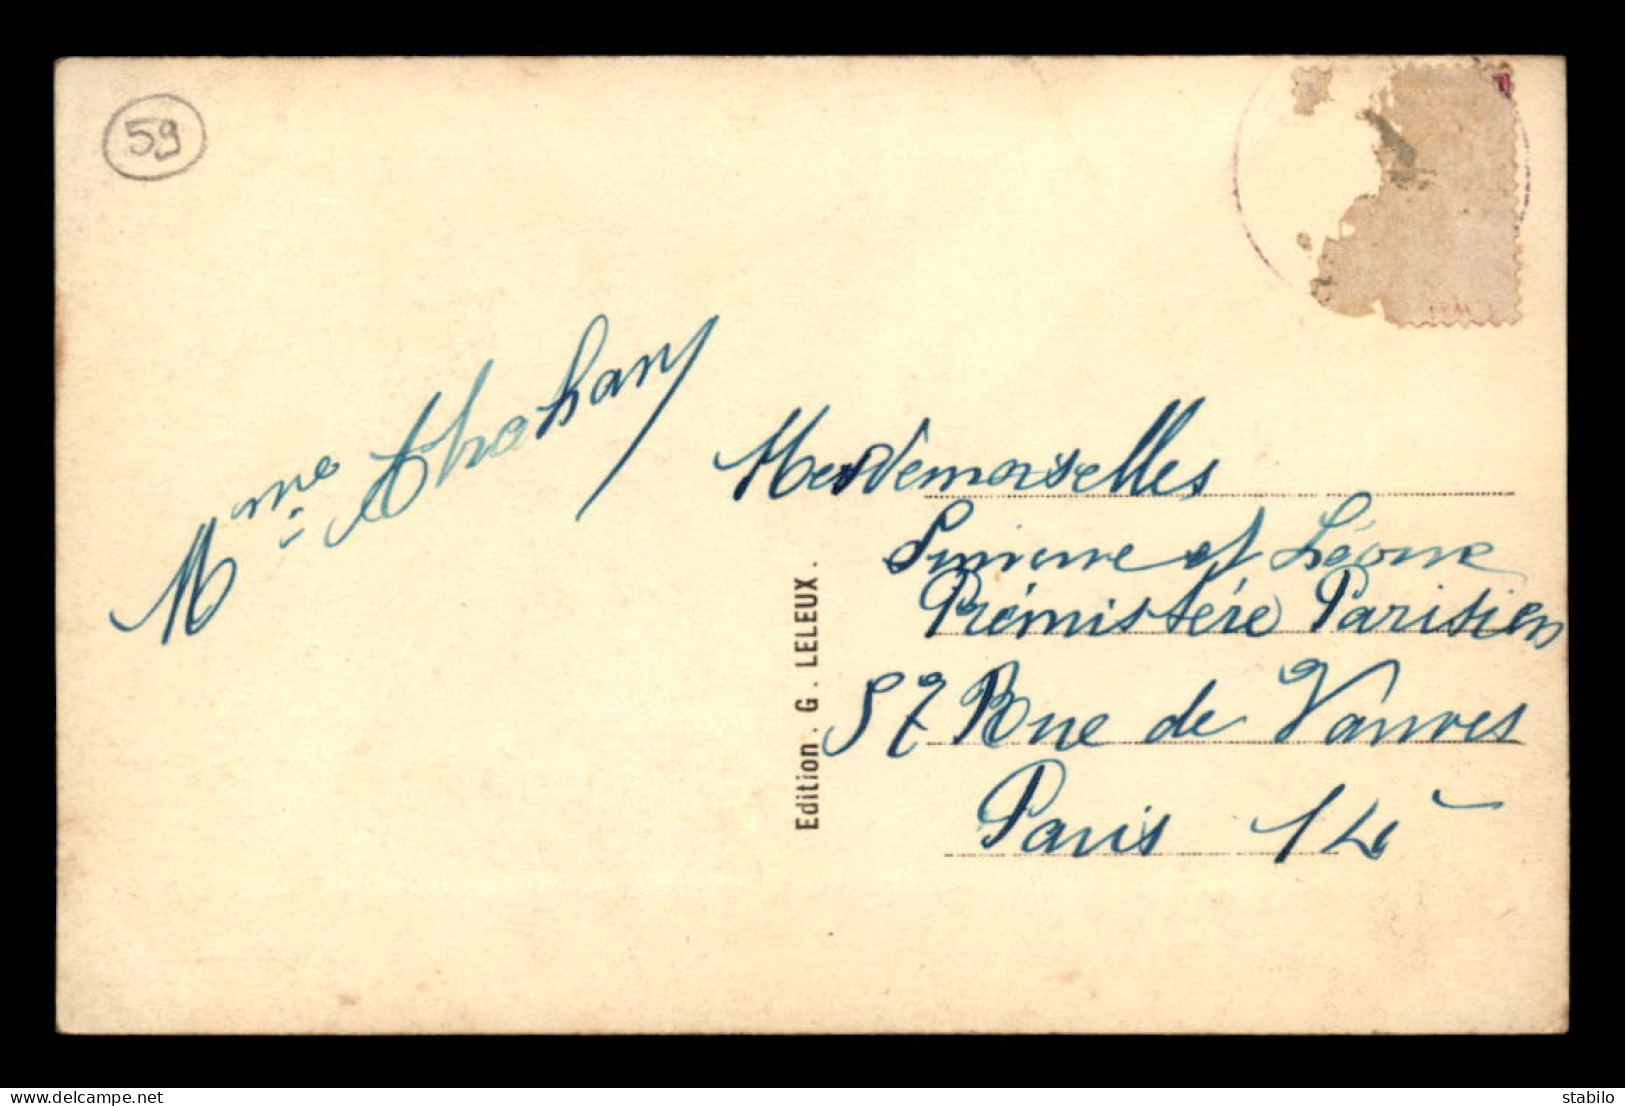 59
Mme Abraham
Mesdemoiselles
Simone et Léone
Prémistère Parisien
57 Rue de Vanves
Paris 14
Edition. G. LELEUX.
delcampe.net
stabilo